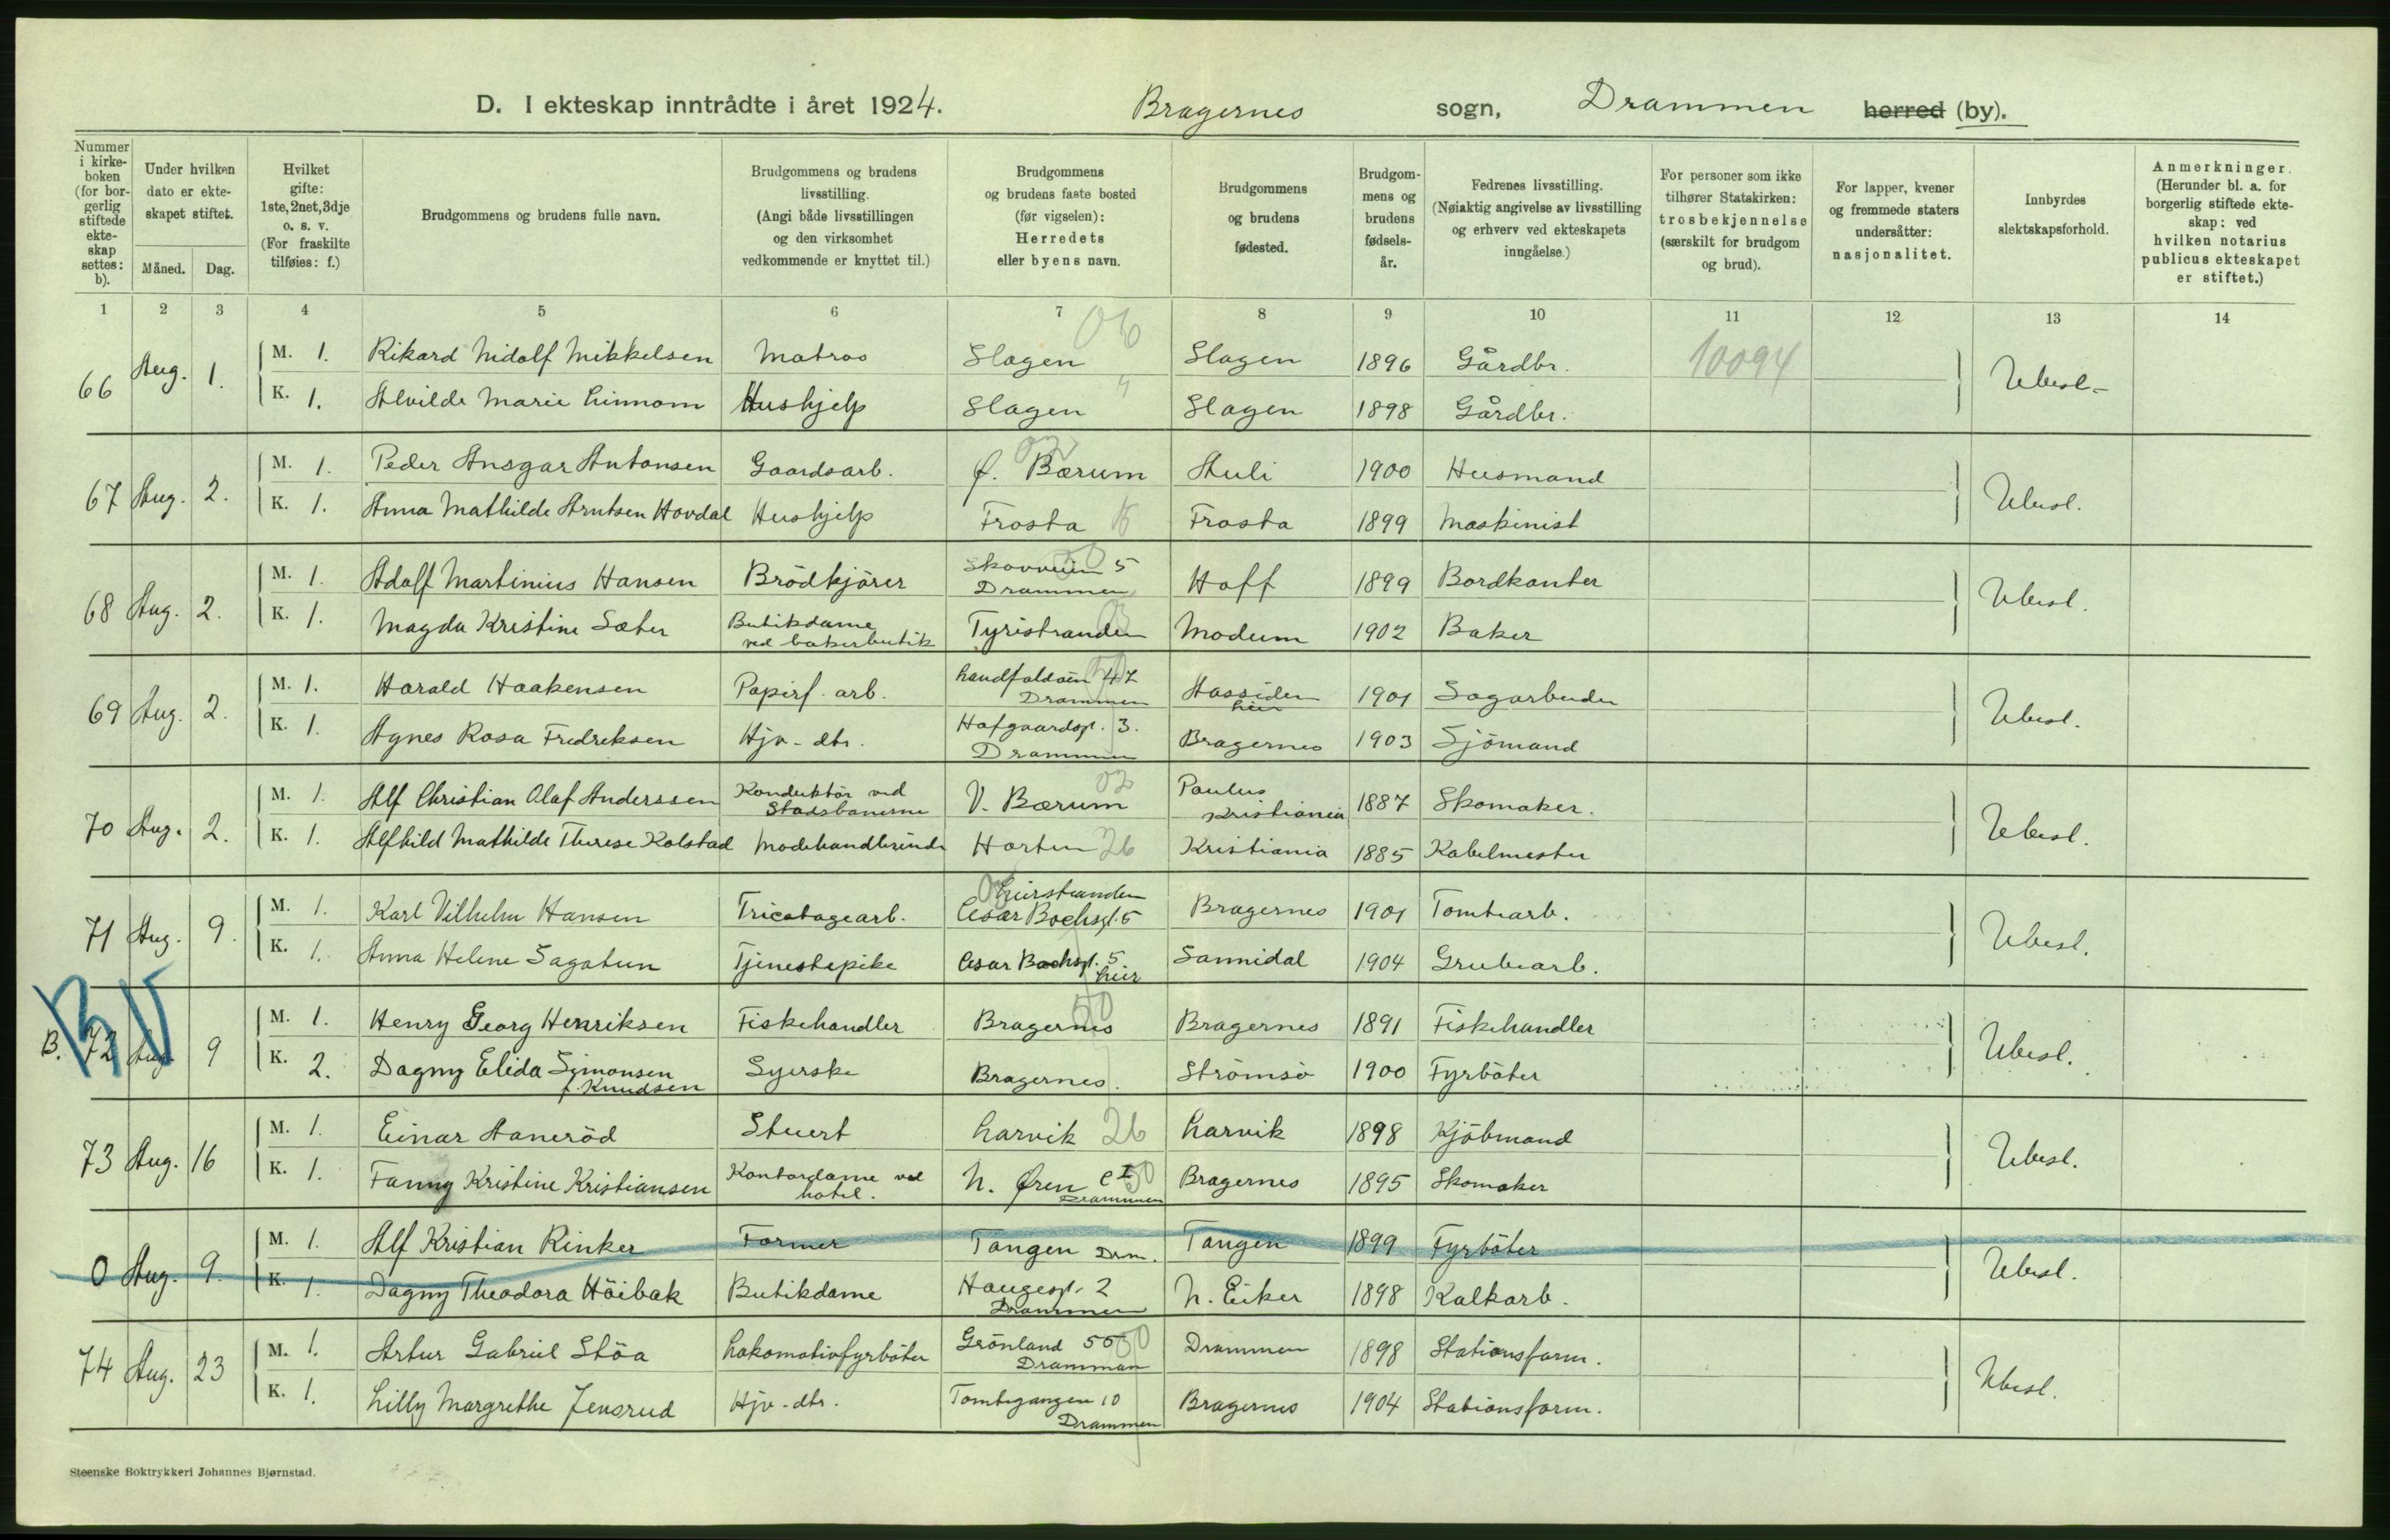 D. I ekteskap inntrådte i året 1924. Bragernes sogn, Drammen herred (by).
Nummer i kirke-boken (for bor-gerlig stiftede ekte-skap settes: b).
Under hvilken dato er ekte-skapet stiftet.
Måned. Dag.
Hvilket gifte: 1ste, 2net, 3dje o. s. v. (For fraskilte tilføies: f.)
Brudgommens og brudens fulle navn.
Brudgommens og brudens livsstilling. (Angi både livsstillingen og den virksomhet vedkommende er knyttet til.)
Brudgommens og brudens faste bosted (før vigselen): Herredets eller byens navn.
Brudgommens og brudens fødested.
Brudgom-mens og brudens fødsels-år.
Fedrenes livsstilling. (Nøiaktig angivelse av livsstilling og erhverv ved ekteskapets inngåelse.)
For personer som ikke tilhører Statskirken: trosbekjennelse (særskilt for brudgom og brud).
For lapper, kvener og fremmede staters undersåtter: nasjonalitet.
Innbyrdes slektskapsforhold.
Anmerkninger. (Herunder bl. a. for borgerlig stiftede ekte-skap: ved hvilken notarius publicus ekteskapet er stiftet.)
1 2 3 4 5 6 7 8 9 10 11 12 13 14
06
66 Aug. 1. M. 1. Rikard Nidolf Mikkelsen Matros Slagen Slagen 1896 Gårdbr. 10094 Ubesl.
K. 1. Alvilde Marie Linnom Hushjelp Slagen Slagen 1898 Gårdbr.
67 Aug. 2. M. 1. Peder Ansgar Antonsen Gaardsarb. Ø. Bærum 02 Auli 1900 Husmand Ubesl.
K. 1. Anna Mathilde Arntsen Hovdal Hushjelp Frosta Frosta 1899 Maskinist
68 Aug. 2. M. 1. Adolf Martinius Hansen Brödkjörer Skovveien 5 Drammen Hoff 1899 Bordkanter Ubesl.
K. 1. Magda Kristine Sæter Butikdame ved bakerbutik Tyristranden Modum 1902 Baker
69 Aug. 2. M. 1. Harald Haakensen Papirf. arb. Landfaldöin 47 Drammen Aassiden her 1901 Sagarbeider Ubesl.
K. 1. Agnes Rosa Fredreksen Hjv-dtr. Hofgaardsgt. 3. Drammen Bragernes 1903 Sjömand
70 Aug. 2. M. 1. Alf Christian Olaf Anderssen Konduktör ved Stadsbanerne V. Bærum 02 Paulus Kristiania 1887 Skomaker. Ubesl.
K. 1. Alfhild Mathilde Therese Kolstad Modehandlerinde Horten 26 Kristiania 1885 Kabelmester
71 Aug. 9. M. 1. Karl Vilhelm Hansen Tricotagearb. Lierstranden Cesar Bochsgt. 5 Bragernes 1901 Tomtearb. Ubesl.
K. 1. Anna Helene Sagatun Tjenestepike Cesar Bochsgt. 5 Lier Sannidal 1904 Grubearb.
B. 72 Aug. 9 M. 1. Henry Georg Henriksen Fiskehandler Bragernes 50 Bragernes 1891 Fiskehandler Ubesl.
K. 2. Dagny Elida Symonsen f. Knudsen Syerske Bragernes. Strömsö 1900 Fyrböter
73 Aug. 16 M. 1. Einar Aaneröd Stuert Larvik 26 Larvik 1898 Kjöbmand Ubesl.
K. 1. Fanny Kristine Kristiansen Kontordame ved hotel. N. Øren C I 50 Drammen Bragernes 1895 Skomaker
0 Aug. 9. M. 1. Alf Kristian Rinker Former Tangen Drm. Tangen 1899 Fyrböter Ubesl.
K. 1. Dagny Theodora Höibak Butikdame Haugesgt. 2 Drammen N. Eiker 1898 Kalkarb.
74 Aug. 23 M. 1. Artur Gabriel Stöa Lokomotivfyrböter Grönland 55 50 Drammen Drammen 1898 Stationsform. Ubesl.
K. 1. Lilly Margrethe Jensrud Hjv-dtr. Tomtegangen 10 Drammen Bragernes 1904 Stationsform.
Steenske Boktrykkeri Johannes Bjørnstad.